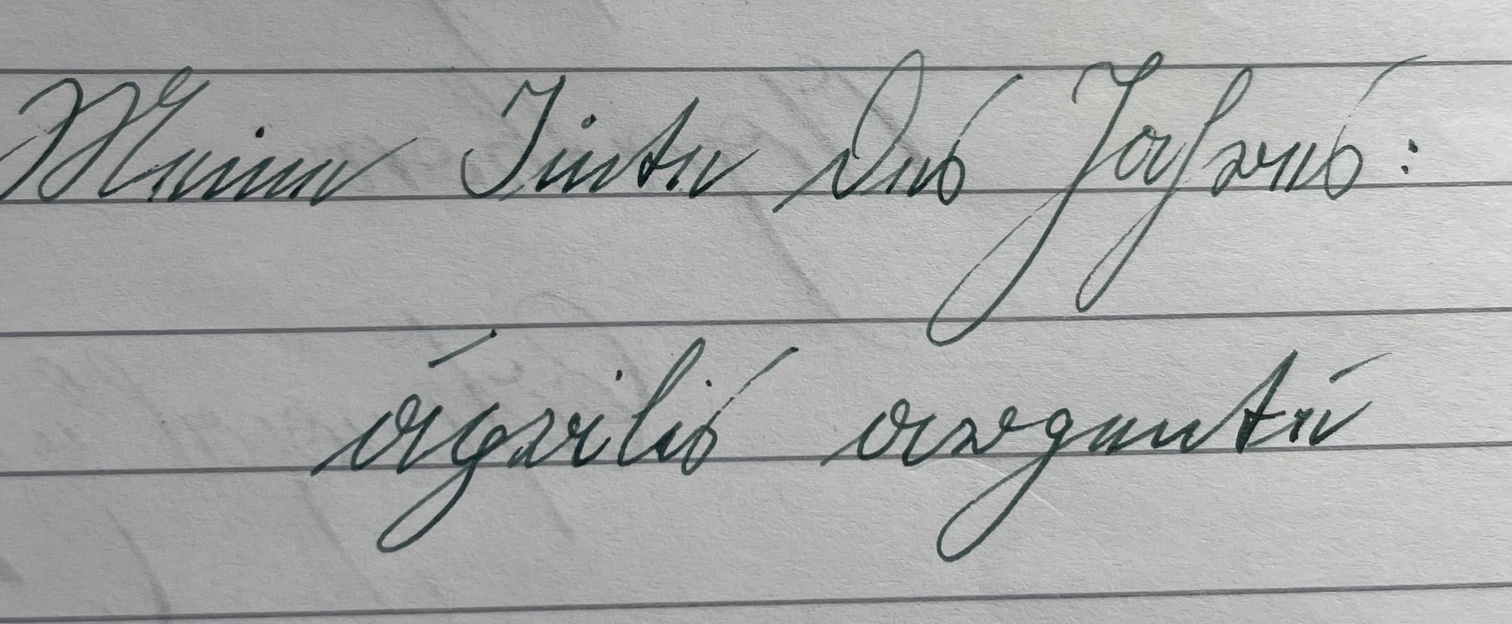 Meine Tinte des Jahres:
április argenté